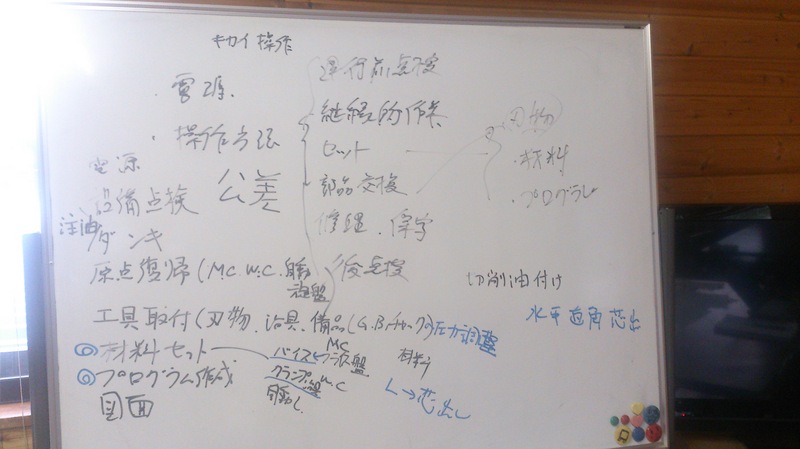 キカイ操作
・電源.
・操作方法
運行前点検
継続的作業
セット
部品交換
修理.保守
後点検
刃物
・材料
・プログラム
電源
設備点検 公差
注油
ダンキ
原点復帰(M.C W.C.
旋盤
切削油付け
工具取付(刃物.治具.備品(G.Bチャックの圧力調整
水平直角芯出
◎材料セット
バイス MC
旋盤 材料
◎プログラム作成
クランプ W.C
→芯出し
図面